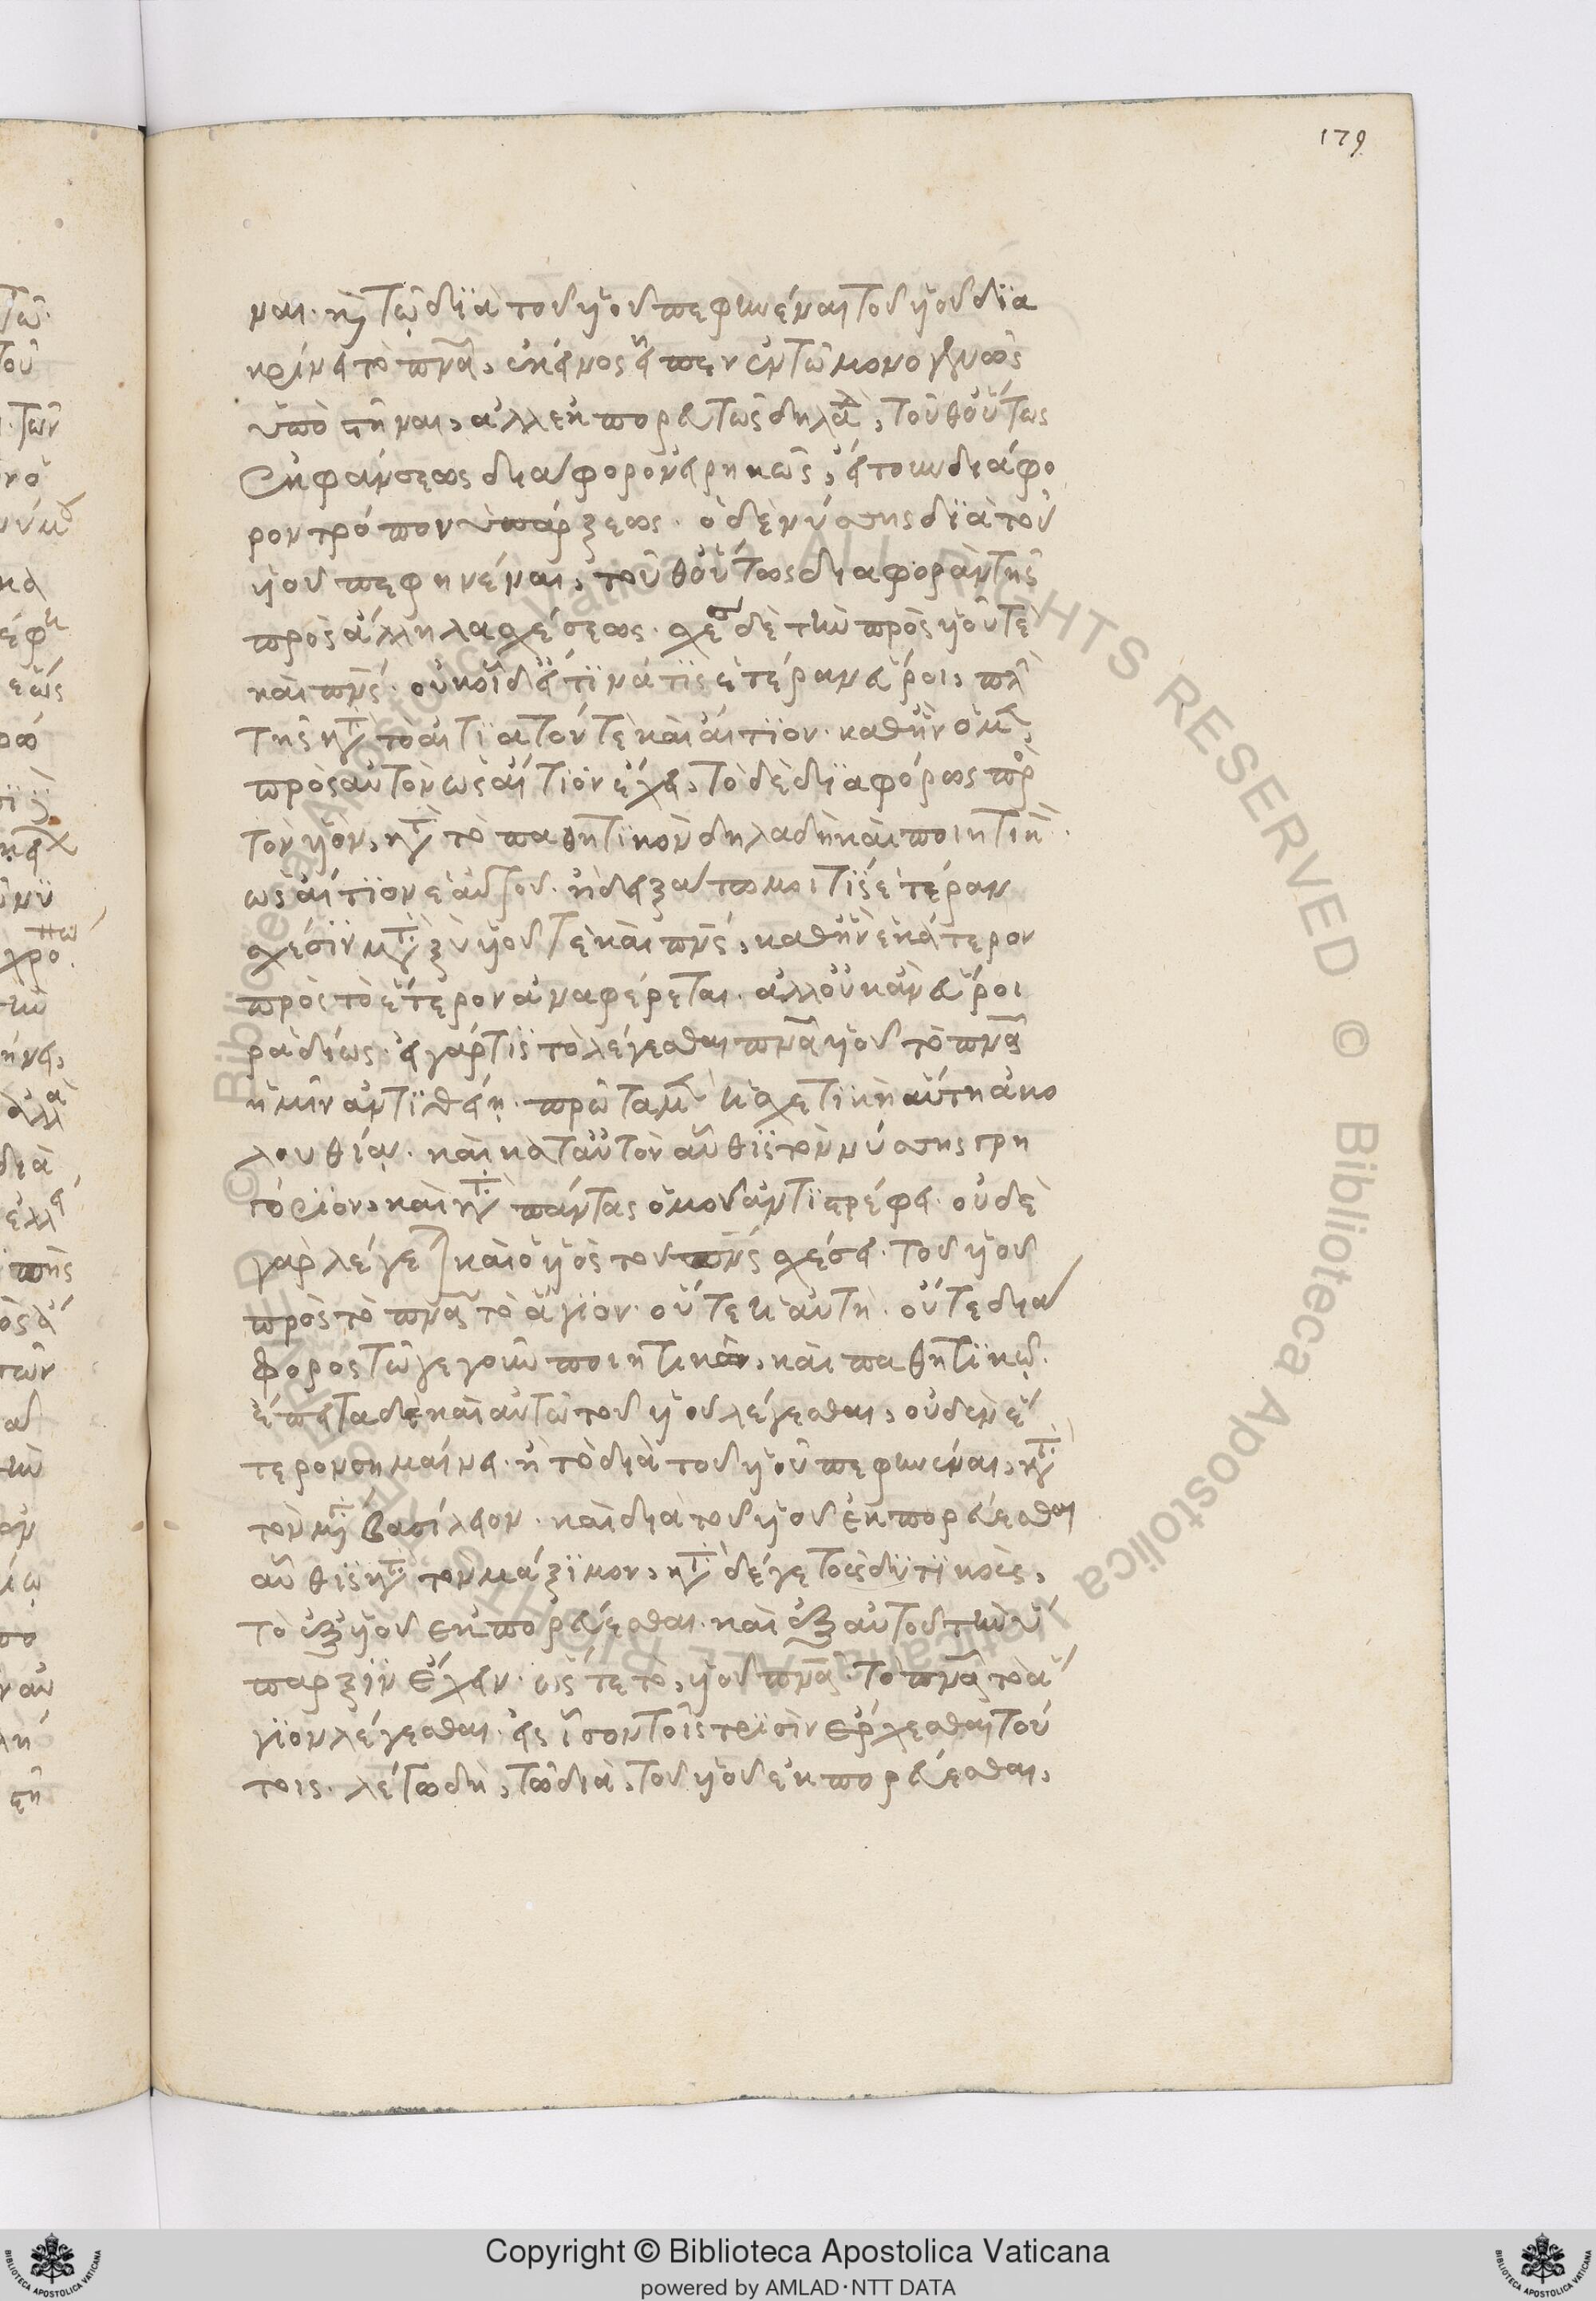 179
ναι· καὶ τῷ διὰ τοῦ υἱοῦ πεφηνέναι τοῦ υἱοῦ δια
κρίνει τὸ πνα̅, ἐκεῖνος εἴπεν ἐν τῶ μονογενῶς
ὑποστῆναι, ἀλλ' ἐκπορευτῶς δηλαδή, τοῦθ' οὕτως
ἐκφάνσεως διάφορον εἰρηκὼς, εἴτουν διάφο
ρον τρόπον ὑπάρξεως· ὁ δὲ νύσσης διὰ τοῦ
υἱοῦ πεφηνέναι, τοῦθ' οὕτως διαφορὰν τῆς
πρὸς ἄλληλα σχέσεως· σχέσιν δὲ τὴν πρὸς υἱοῦ τὲ
καὶ πνς̅· οὐκ οἶδ' εἴ τινά τις ἑτέραν εὕροι, πλὴν
τῆς κατὰ τὸ αἰτιατόν τὲ καὶ αἴτιον· καθ' ἣν ὁ μὲν
πρὸς αὐτὸν ὡς αἴτιον ἔχει, τὸ δὲ διαφόρως πρὸς
τὸν υἱὸν, κατὰ τὸ παθητικὸν δηλαδὴ καὶ ποιητικὸν
ὡς αἴτιον ἑαυτοῦ· ἢ δειξάτω μοι τίς ἑτέραν
σχέσιν μεταξὺ υἱοῦ τὲ καὶ πνς̅, καθ' ἣν ἑκάτερον
πρὸς τὸ ἕτερον ἀναφέρεται· ἀλλ' οὐκ ἂν εὕροι
ῥαδίως· εἰ γάρ τις τὸ λέγεσθαι πνα̅ υἱοῦ τὸ πνα̅
ἡμῖν ἀντιθείη· πρῶτα μὲν ἡ σχετικὴ αὕτη ἀκο
λουθία· καὶ κατ' αὐτὸν αὖθις τὸν νύσσης γρη
γόριον, καὶ κατὰ πάντας ὁμοῦ ἀντιστρέφει· οὐδὲ
γὰρ λέγεται καὶ ὁ υἱὸς τοῦ πνς̅ σχέσει· τοῦ υἱοῦ
πρὸς τὸ πνα̅ τὸ ἅγιον· οὔτε ἡ αὐτὴ· οὔτε διά
φορος τῷ λεγομένῳ ποιητικῶ, καὶ παθητικῷ·
ἔπειτα δὲ καὶ αὐτῶ τοῦ υἱοῦ λέγεσθαι, οὐδὲν ἕ
τερον σημαίνει· ἢ τὸ διὰ τοῦ υἱοῦ πεφηνέναι, κατὰ
τὸν μέγαν βασίλειον· καὶ διὰ τοῦ υἱοῦ ἐκπορεύεσθαι
αὖθις κατὰ τὸν μάξιμον, κατὰ δέ γε τοὺς δυτικοὺς,
τὸ ἐξ υἱοῦ ἐκπορεύεσθαι· καὶ ἐξ αὐτοῦ τὴν ὕ
παρξιν ἔχειν· ὥς τε τὸ, υἱοῦ πνα̅· τὸ πνα̅ τὸ ἅ
γιον λέγεσθαι· εἰς ἴσον τοῖς τρισὶν ἔρχεσθαι τού
τοις· λέγω δὴ, τῶ διὰ, τοῦ υἱοῦ ἐκπορεύεσθαι,
Copyright © Biblioteca Apostolica Vaticana
powered by AMLAD·NTT DATA